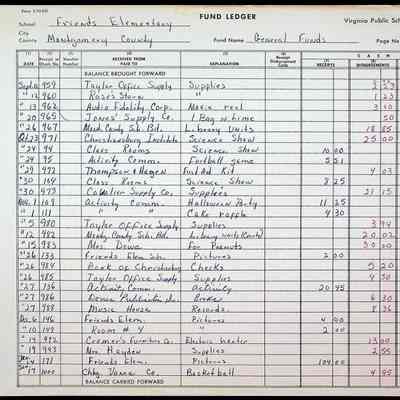 School Friends Elementary FUND LEDGER Virginia Public Sch
City
County Montgomery County Fund Name General Funds Page No
DATE RECEIVED FROM PAID TO EXPLANATION RECEIPTS DISBURSEMENTS
BALANCE BROUGHT FORWARD
959 Taylor Office Supply Supplies
" 12 960 Rose's Store " 1 23
" 13 962 Audio Fidelity Corp. Music reel 3 50
" 20 965 Jones' Supply Co. 1 Bag n lime 50
" 26 967 Mont. County Sch. Bd. Library Units 18 85
Oct. 23 971 Christiansburg Institute Science Show 25 00
" 24 94 Class Rooms Science Show 10 00
" 24 95 Activity Comm. Football game 5 51
" 29 972 Thompson & Hagen First Aid Kit 4 03
" 30 104 Class Rooms Science Show 8 25
" 30 973 Supply Co. Supplies 21 15
Nov. 1 109 Activity Comm. Halloween Party 11 25
" 1 111 " " Cake raffle 4 30
" 5 980 Taylor Office Supply Supplies 3 94
" 12 982 Montg. County Sch. Bd. Library Units 20 02
" 15 983 Mrs. Dowe For Peanuts 30 00
" 26 133 Friends Elem. Sch. Pictures 2 00
" 26 984 Bank of Christiansburg Checks 5 20
" 26 985 Taylor Office Supply Supplies 4 50
" 27 136 Activity Comm. Activity 20 45
" 27 986 6 30
" 27 988 Music House Records 8 36
Dec. 6 146 Friends Elem. Pictures 4 00
" 10 149 Room # 4 " 2 00
" 14 992 Cromer's Furniture Co. Electric heater 13 00
" 19 993 Mrs. Hayden Supplies 2 55
171 Friends Elem. Pictures 104 00
" 17 1000 Chbg. Vance Co. Basketball 4 95
BALANCE CARRIED FORWARD